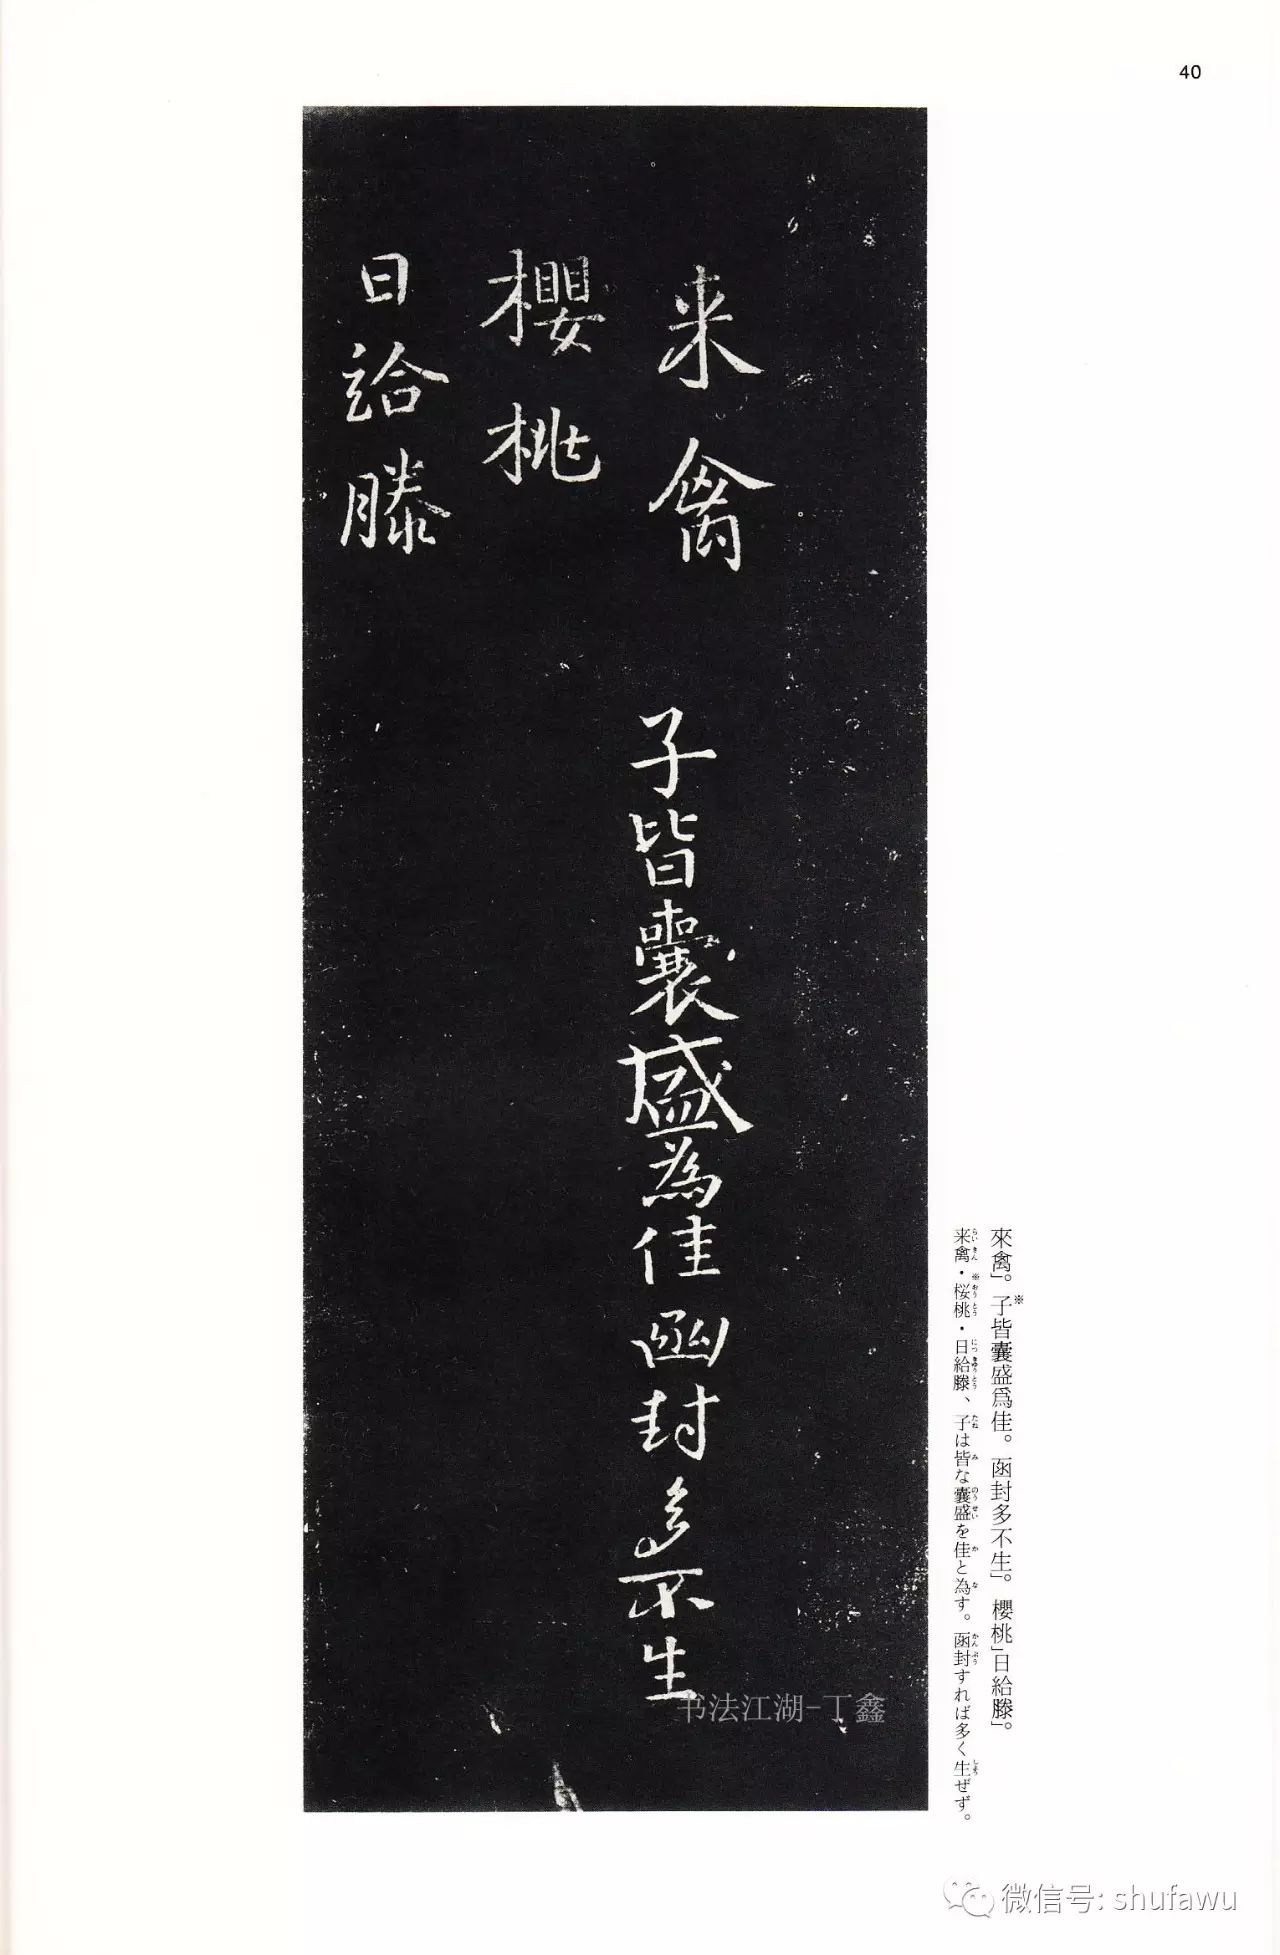 40
来禽
子皆囊盛為佳函封多不生
櫻桃
日給滕
來禽」。子※皆囊盛爲佳。函封多不生」。櫻桃」日給滕」。
来禽・※桜桃・日給滕、子は皆な囊盛を佳と為す。函封すれば多く生ぜず。
书法江湖-丁鑫
微信号: shufawu